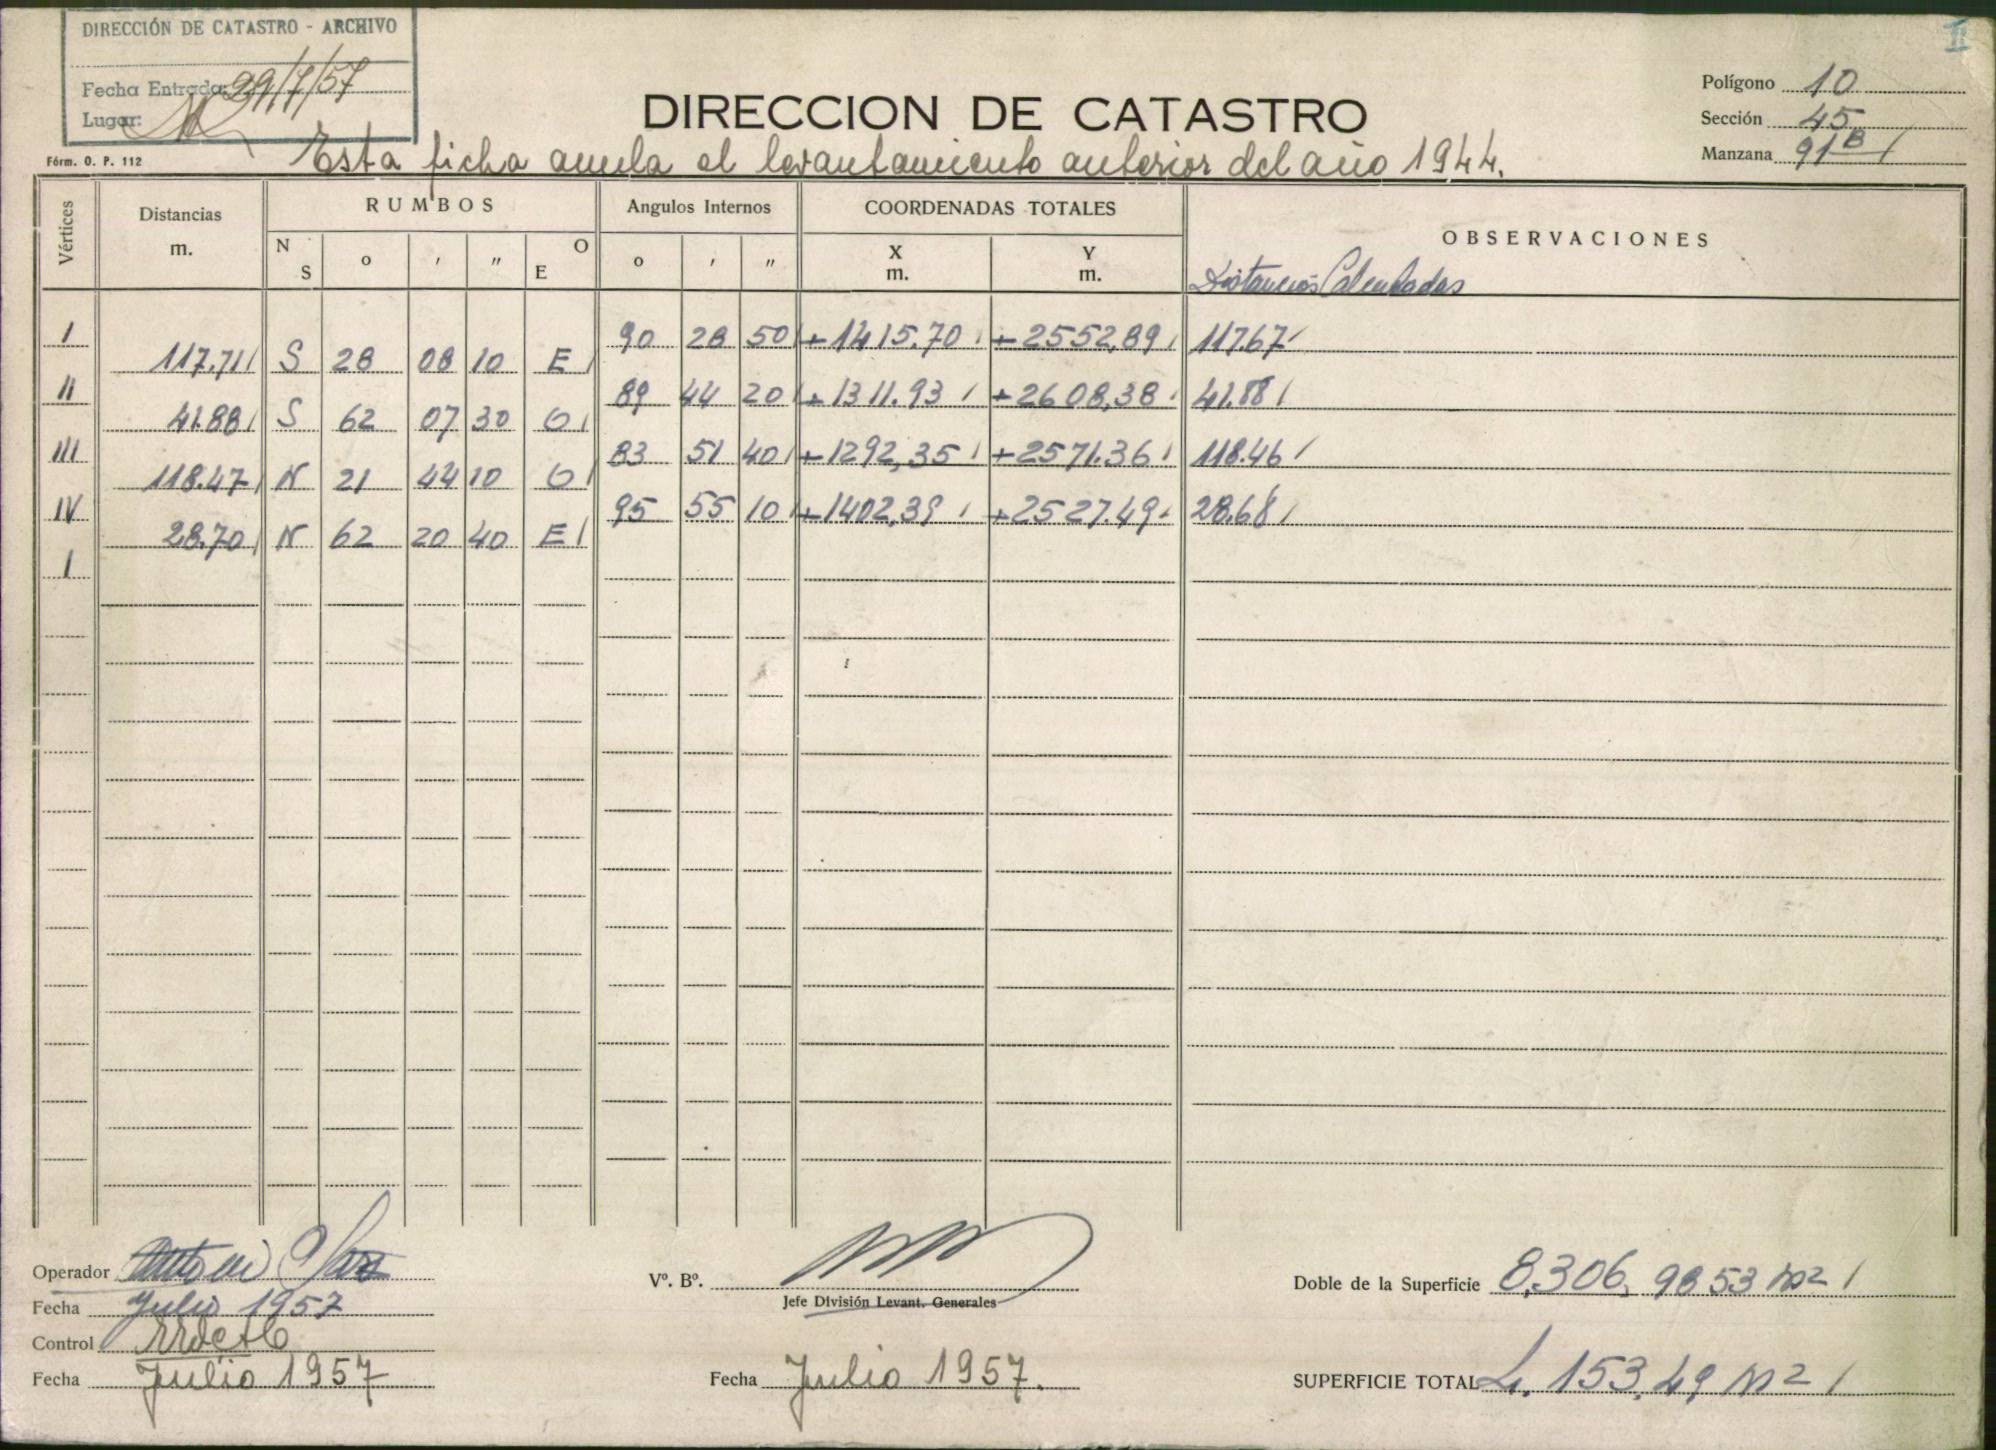 II
DIRECCIÓN DE CATASTRO - ARCHIVO
Fecha Entrada: 29/7/57
Lugar:
Fórm. O. P. 112
DIRECCION DE CATASTRO
Polígono 10
Sección 45
Manzana 91B
Esta ficha anula el levantamiento anterior del año 1944.
Vértices Distancias m. RUMBOS Angulos Internos COORDENADAS TOTALES OBSERVACIONES
N S o ' " E O o ' " X m. Y m. Distancias Calculadas
I 90 28 50 +1415.70 +2552,89 117.67
117.71 S 28 08 10 E
II 89 44 20 +1311.93 +2608,38 41.88
41.88 S 62 07 30 O
III 83 51 40 +1292,35 +2571.36 118.46
118.47 N 21 44 10 O
IV 95 55 10 +1402,39 +2527.49 28.68
28.70 N 62 20 40 E
I
Operador
Fecha Julio 1957
Control
Fecha Julio 1957
Vº. Bº.
Jefe División Levant. Generales
Fecha Julio 1957.
Doble de la Superficie 8.306,9853 m2
SUPERFICIE TOTAL 4.153,49 m2